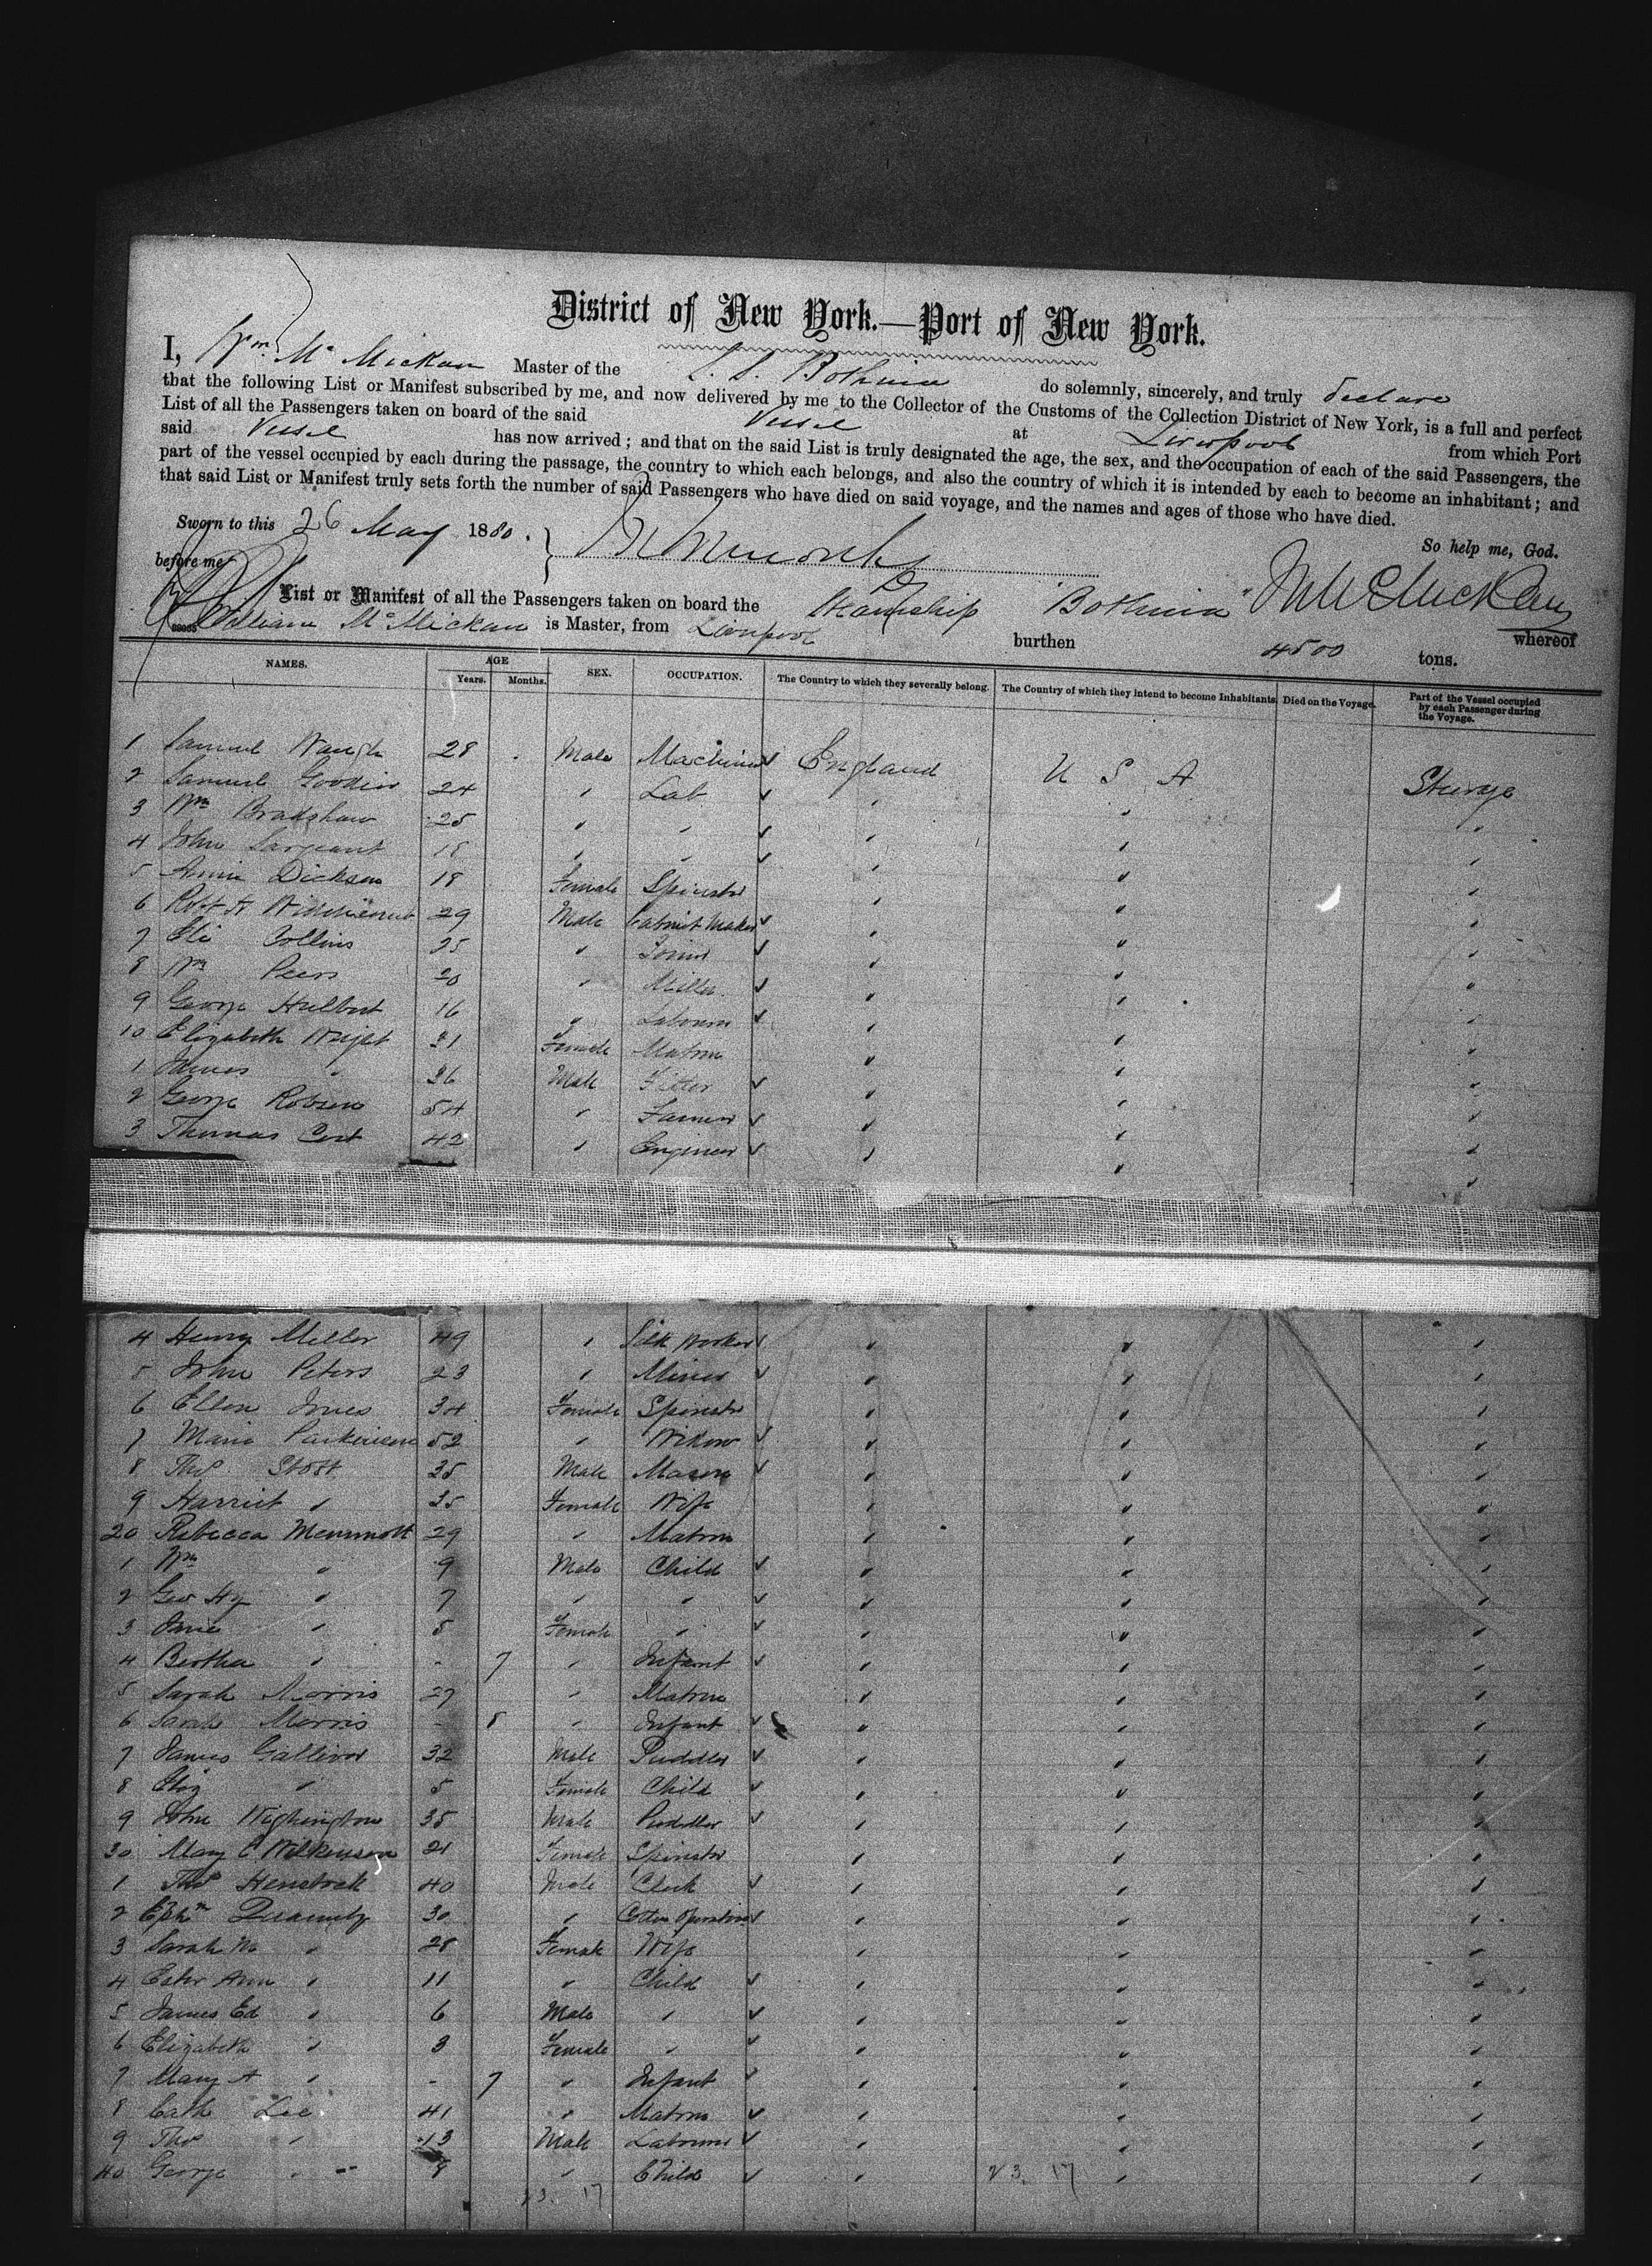 District of New York.—Port of New York.
I, Wm McMickan Master of the S. S. Bothnia do solemnly, sincerely, and truly declare
that the following List or Manifest subscribed by me, and now delivered by me to the Collector of the Customs of the Collection District of New York, is a full and perfect
List of all the Passengers taken on board of the said Vessel at Liverpool from which Port
said Vessel has now arrived; and that on the said List is truly designated the age, the sex, and the occupation of each of the said Passengers, the
part of the vessel occupied by each during the passage, the country to which each belongs, and also the country of which it is intended by each to become an inhabitant; and
that said List or Manifest truly sets forth the number of said Passengers who have died on said voyage, and the names and ages of those who have died.
So help me, God.
Sworn to this 26 May 1880.
before me
List or Manifest of all the Passengers taken on board the Steamship "Bothnia" whereof
William McMickan is Master, from Liverpool burthen 4500 tons.
NAMES. AGE Years. Months. SEX. OCCUPATION. The Country to which they severally belong. The Country of which they intend to become Inhabitants. Died on the Voyage. Part of the Vessel occupied by each Passenger during the Voyage.
1 Samuel Waugh 28 Male Machinist England U S A Steerage
2 Samuel 24 " Lab " " "
3 Wm Bradshaw 25 " " " " "
4 John Sargeant 18 " " " " "
5 Annie Dickson 18 Female Spinster " " "
6 Robt A 29 Male Cabinet Maker " " "
7 Eli Collins 25 " Joiner " " "
8 Wm Peers 20 " Miller " " "
9 George Hulbert 16 " Labourer " " "
10 Elizabeth Wright 31 Female Matron " " "
1 James " 36 Male Fitter " " "
2 George Robson 54 " Farmer " " "
3 Thomas Cort 42 " Engineer " " "
4 Henry Miller 49 " Silk Worker " " "
5 John Peters 23 " Miner " " "
6 Ellen Jones 34 Female Spinster " " "
7 Maria Parkinson 52 " Widow " " "
8 Thos Stott 35 Male Mason " " "
9 Harriet " 35 Female Wife " " "
20 Rebecca Memmott 29 " Matron " " "
1 Wm " 9 Male Child " " "
2 Geo Hy " 7 " " " " "
3 Jane " 5 Female " " " "
4 Bertha " - 7 " Infant " " "
5 Sarah Morris 27 " Matron " " "
6 Sarah Morris - 8 " Infant " " "
7 James Galliver 32 Male Puddler " " "
8 Eliz " 5 Female Child " " "
9 John Wighington 35 Male Puddler " " "
30 Mary E Wilkinson 21 Female Spinster " " "
1 Thos 40 Male Clerk " " "
2 Ephm 30 " Cotton Operative " " "
3 Sarah " 28 Female Wife " " "
4 Ester Ann " 11 " Child " " "
5 James Ed " 6 Male " " " "
6 Elizabeth " 3 Female " " " "
7 Mary A " - 7 " Infant " " "
8 Cath Lee 41 " Matron " " "
9 Thos " 13 Male Labourer " " "
40 George " 8 " Child " " "
23. 17 23. 17